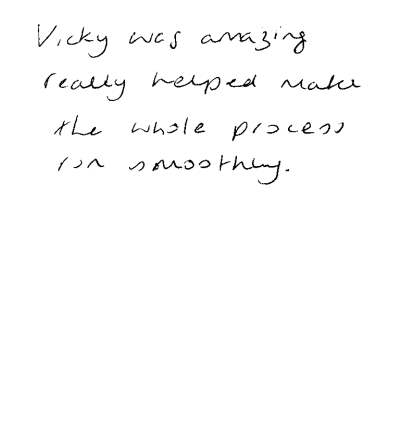 Vicky was amazing
really helped make
the whole process
run smoothly.